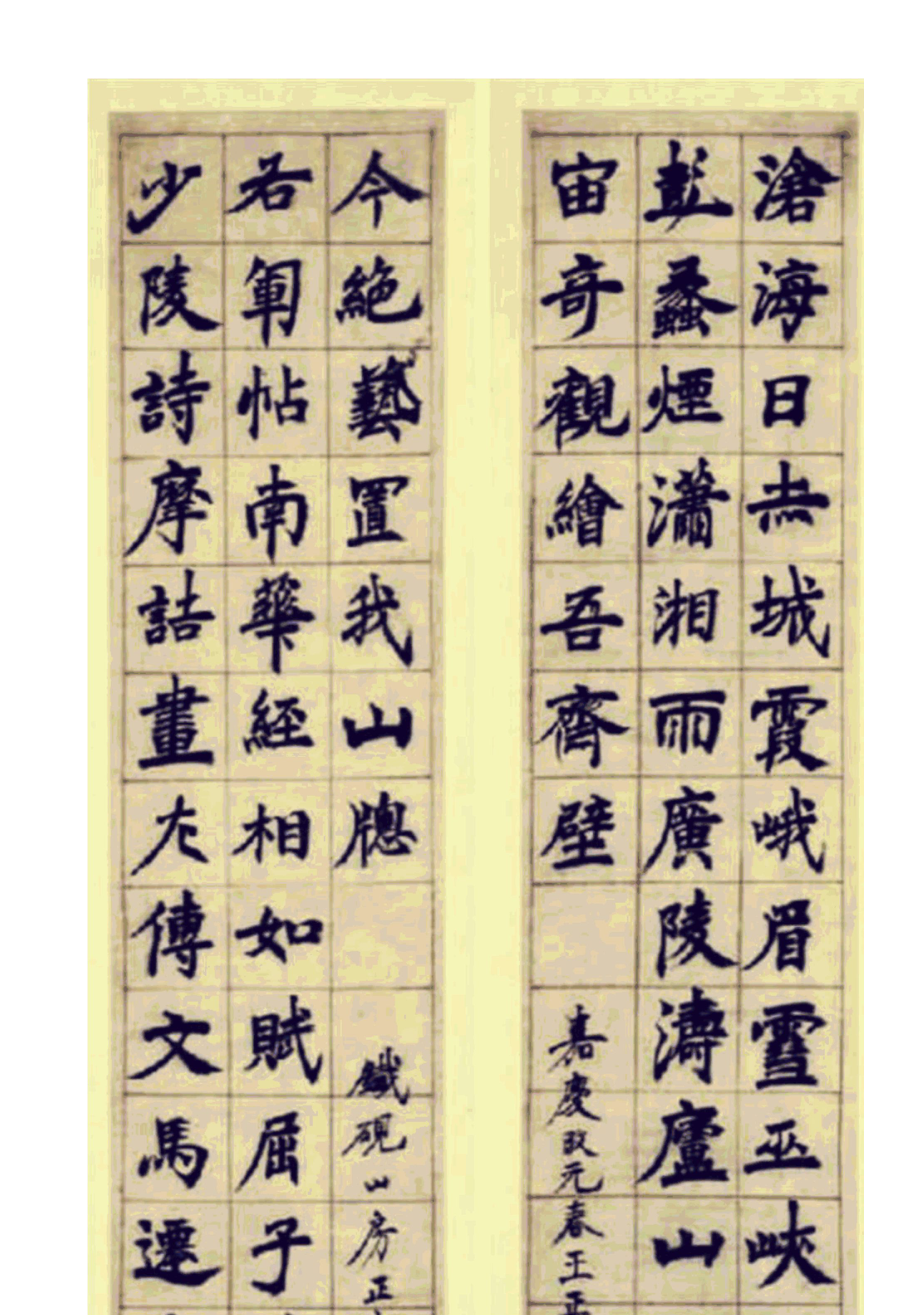 滄海日赤城霞峨眉雪巫峽
彭蠡煙瀟湘雨廣陵濤廬山
宙奇觀繪吾齋壁
嘉慶改元春王正
少陵詩摩詰畫左傳文馬遷
右軍帖南華經相如賦屈子
今絶藝置我山牕
鐵硯山房正